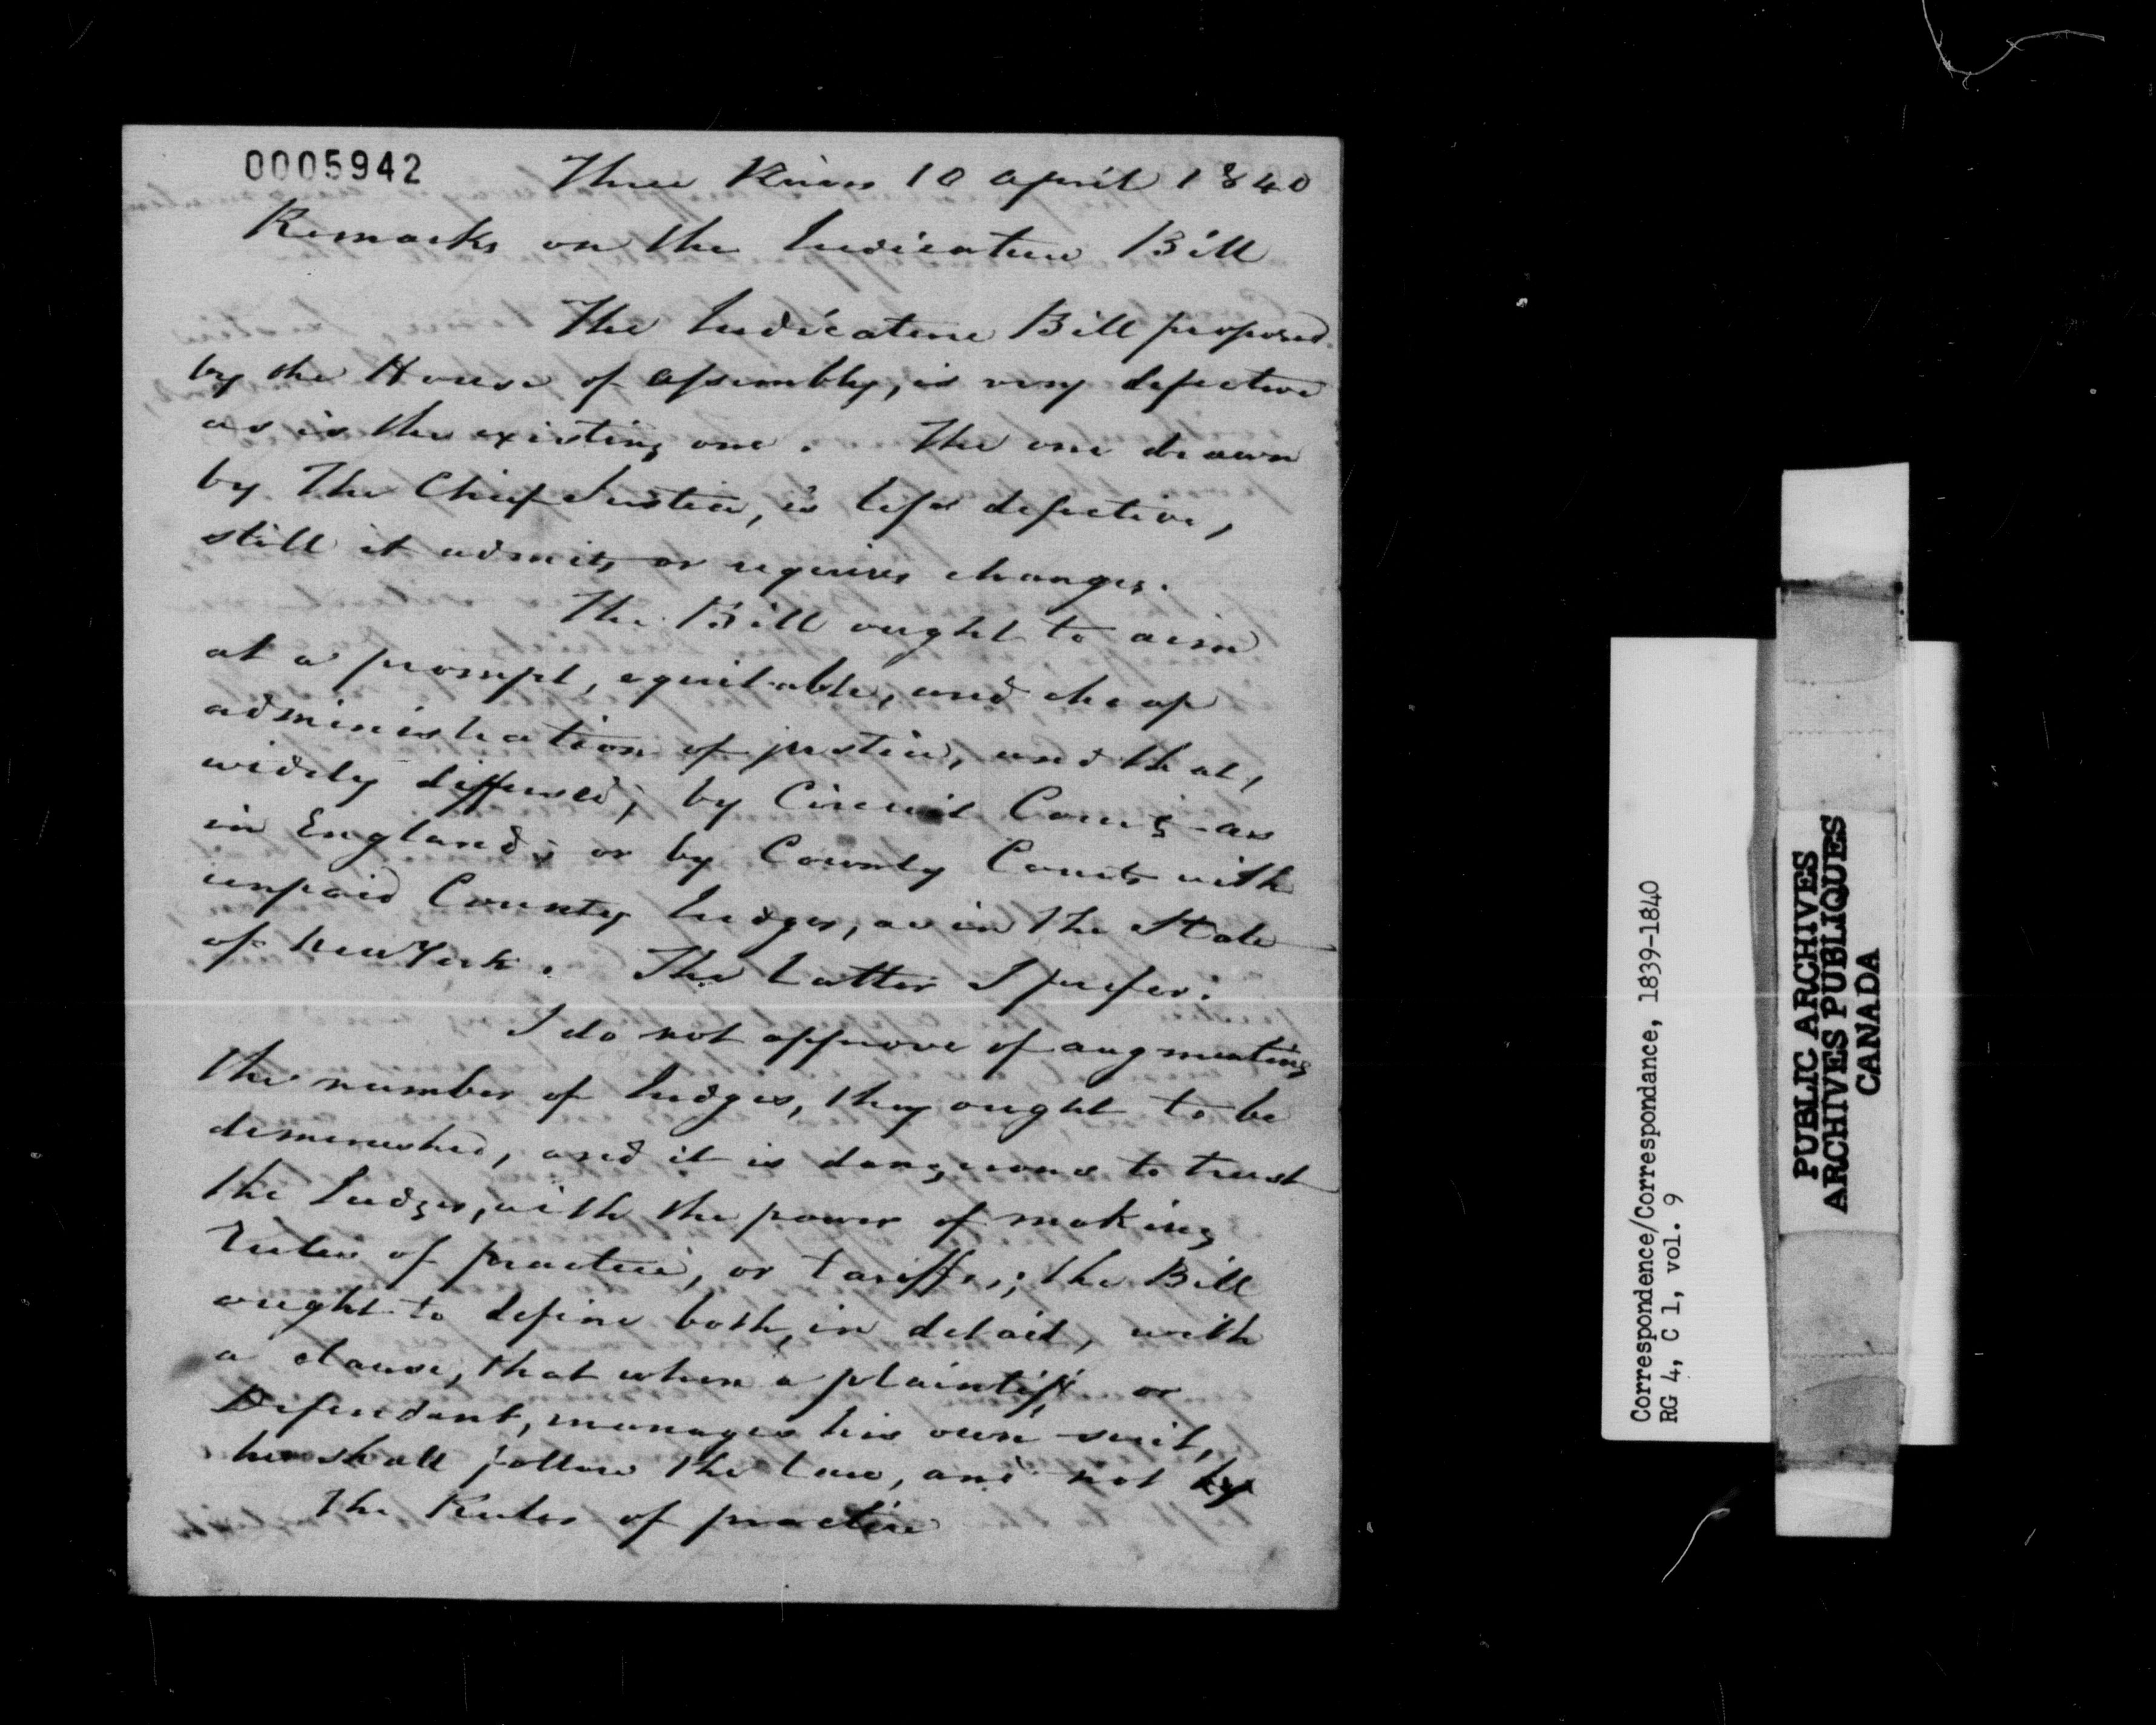 0005942
Three Rivers 10 April 1840
Remarks on the Judicature Bill
The Judicature Bill proposed
by the House of Assembly, is very defective
as is the existing one. The one drawn
by The Chief Justice, is less defective,
still it admits or requires changes.
The Bill ought to aim
at a prompt, equitable, and cheap
administration of justice, and that,
widely diffused; by Circuit Courts as
in England; or by County Courts with
unpaid County Judges, as in the State
of New York. The Latter I prefer.
I do not approve of augmenting
the number of Judges, they ought to be
diminished, and it is dangerous to trust
the Judges, with the power of making
Rules of practice, or tariffs,; the Bill
ought to define both, in detail, with
a clause, that when a plaintiff, or
Defendant, manages his own suit,
he shall follow the Law, and not by
the Rules of practice
Correspondence/Correspondance, 1839-1840
RG 4, C 1, vol. 9
PUBLIC ARCHIVES
ARCHIVES PUBLIQUES
CANADA